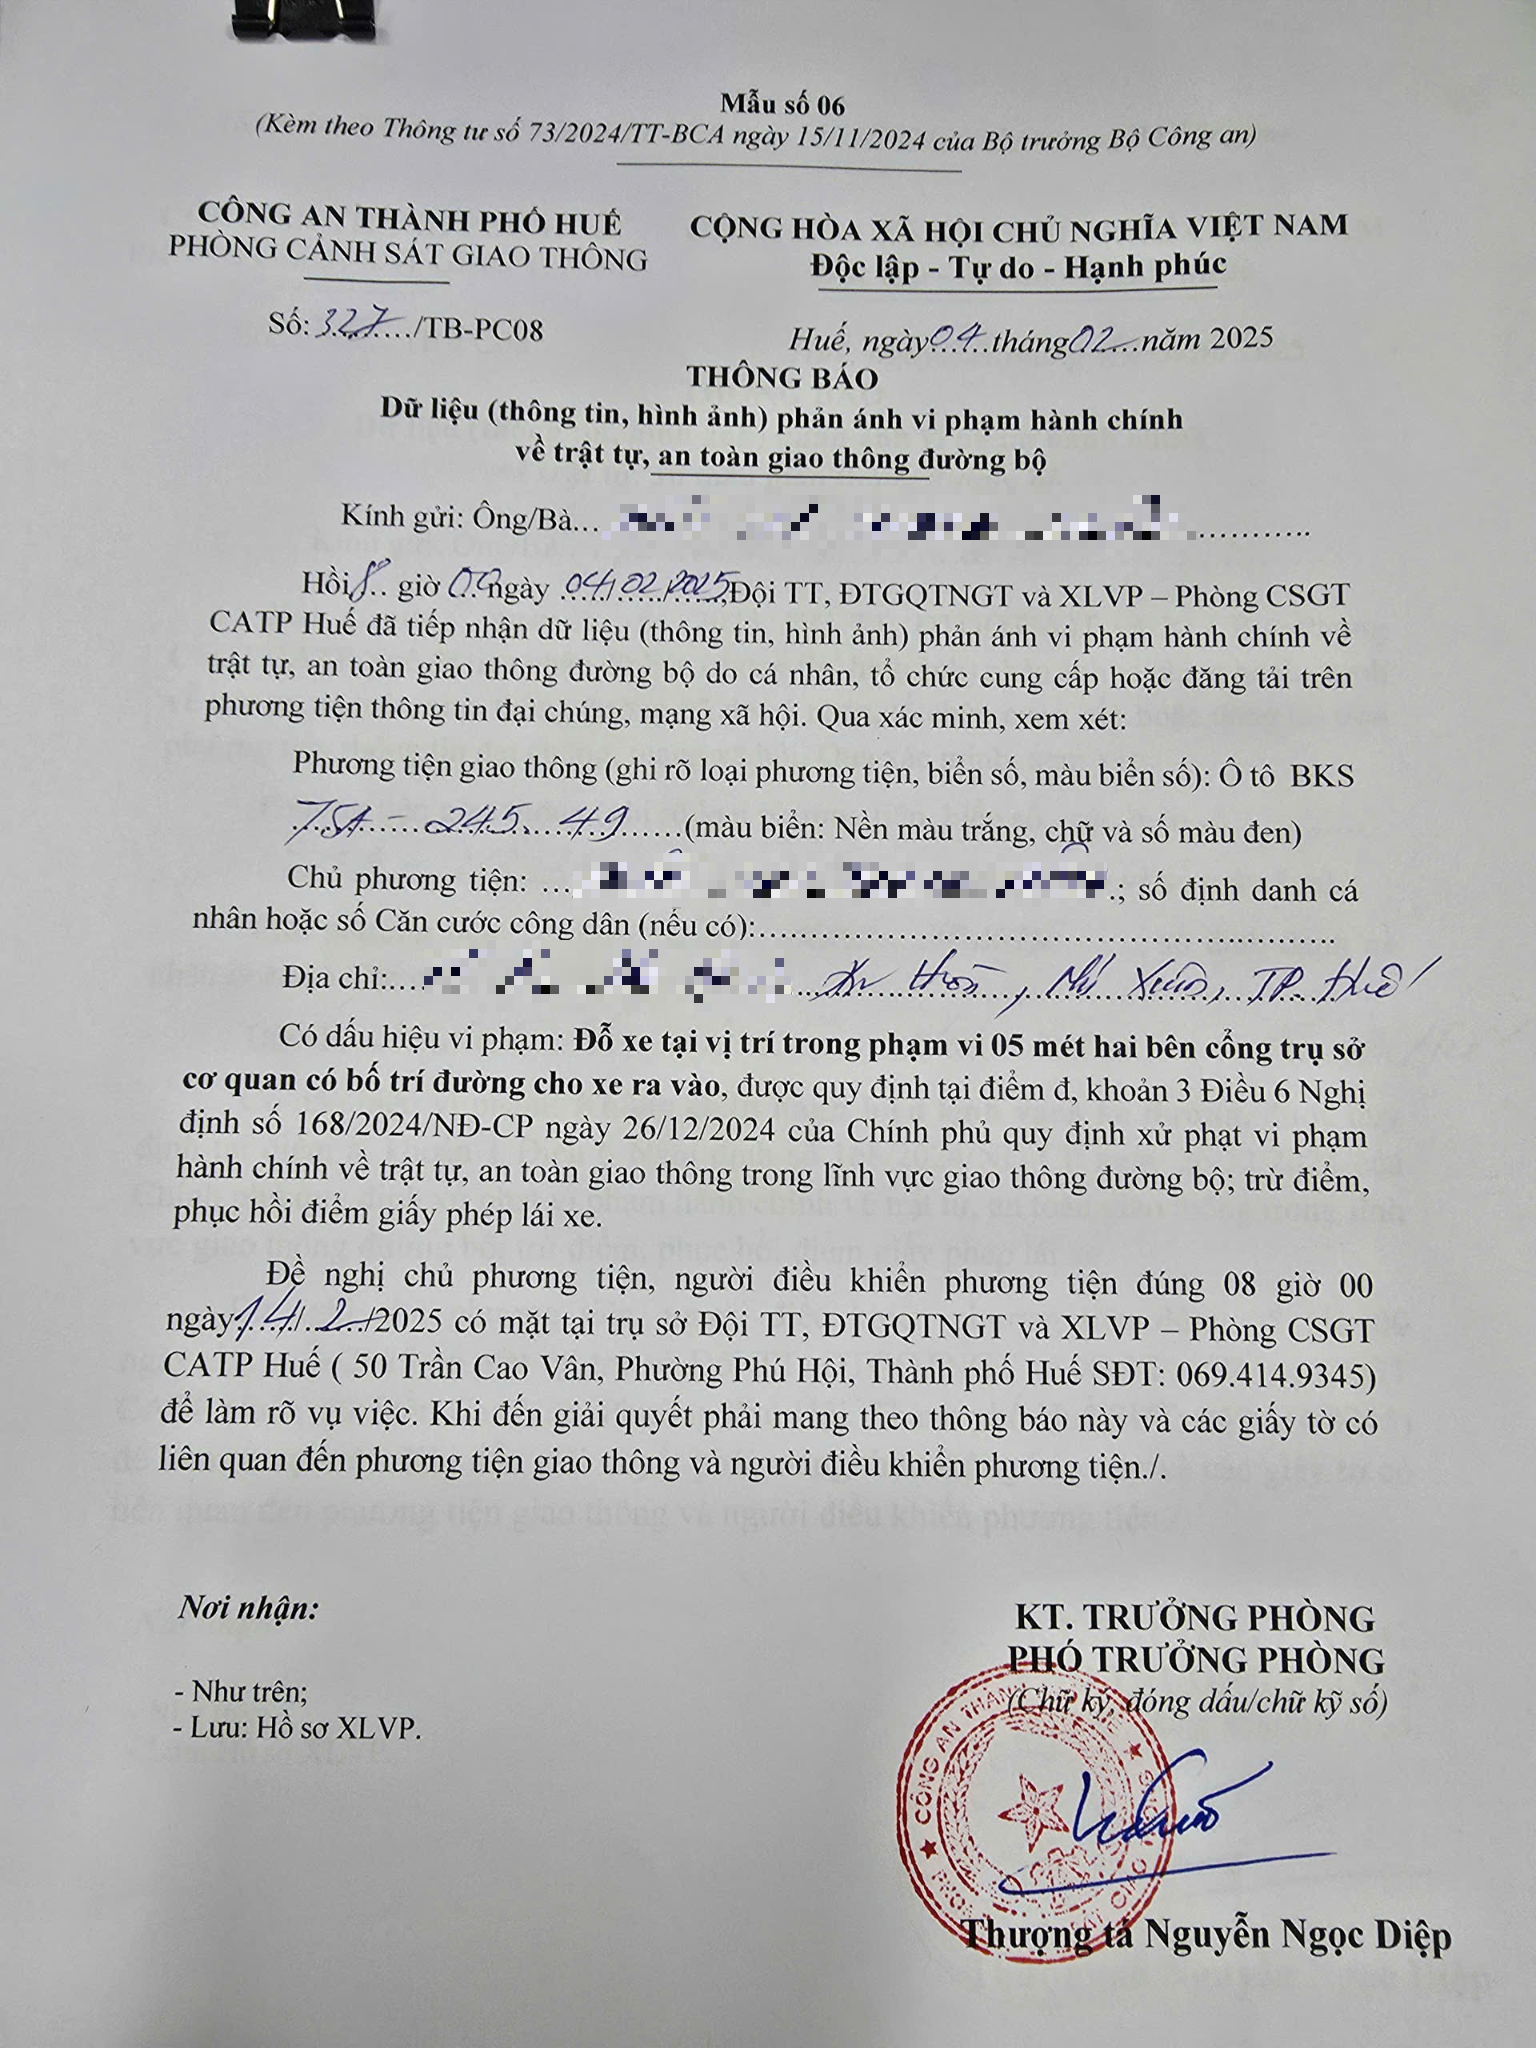 Mẫu số 06
(Kèm theo Thông tư số 73/2024/TT-BCA ngày 15/11/2024 của Bộ trưởng Bộ Công an)
CÔNG AN THÀNH PHỐ HUẾ
PHÒNG CẢNH SÁT GIAO THÔNG
CỘNG HÒA XÃ HỘI CHỦ NGHĨA VIỆT NAM
Độc lập - Tự do - Hạnh phúc
Số: 327/TB-PC08
Huế, ngày 04 tháng 02 năm 2025
THÔNG BÁO
Dữ liệu (thông tin, hình ảnh) phản ánh vi phạm hành chính
về trật tự, an toàn giao thông đường bộ
Kính gửi: Ông/Bà...
Hồi 8 giờ 00 ngày 04/02/2025, Đội TT, ĐTGQTNGT và XLVP – Phòng CSGT
CATP Huế đã tiếp nhận dữ liệu (thông tin, hình ảnh) phản ánh vi phạm hành chính về
trật tự, an toàn giao thông đường bộ do cá nhân, tổ chức cung cấp hoặc đăng tải trên
phương tiện thông tin đại chúng, mạng xã hội. Qua xác minh, xem xét:
Phương tiện giao thông (ghi rõ loại phương tiện, biển số, màu biển số): Ô tô BKS
75A - 245.49 (màu biển: Nền màu trắng, chữ và số màu đen)
Chủ phương tiện: ... ; số định danh cá
nhân hoặc số Căn cước công dân (nếu có):
Địa chỉ: An Hòa, Phú Xuân, TP. Huế
Có dấu hiệu vi phạm: Đỗ xe tại vị trí trong phạm vi 05 mét hai bên cổng trụ sở
cơ quan có bố trí đường cho xe ra vào, được quy định tại điểm đ, khoản 3 Điều 6 Nghị
định số 168/2024/NĐ-CP ngày 26/12/2024 của Chính phủ quy định xử phạt vi phạm
hành chính về trật tự, an toàn giao thông trong lĩnh vực giao thông đường bộ; trừ điểm,
phục hồi điểm giấy phép lái xe.
Đề nghị chủ phương tiện, người điều khiển phương tiện đúng 08 giờ 00
ngày 14/2/2025 có mặt tại trụ sở Đội TT, ĐTGQTNGT và XLVP – Phòng CSGT
CATP Huế ( 50 Trần Cao Vân, Phường Phú Hội, Thành phố Huế SĐT: 069.414.9345)
để làm rõ vụ việc. Khi đến giải quyết phải mang theo thông báo này và các giấy tờ có
liên quan đến phương tiện giao thông và người điều khiển phương tiện./.
Nơi nhận:
- Như trên;
- Lưu: Hồ sơ XLVP.
KT. TRƯỞNG PHÒNG
PHÓ TRƯỞNG PHÒNG
(Chữ ký, đóng dấu/chữ ký số)
CÔNG AN THÀNH
Thượng tá Nguyễn Ngọc Diệp